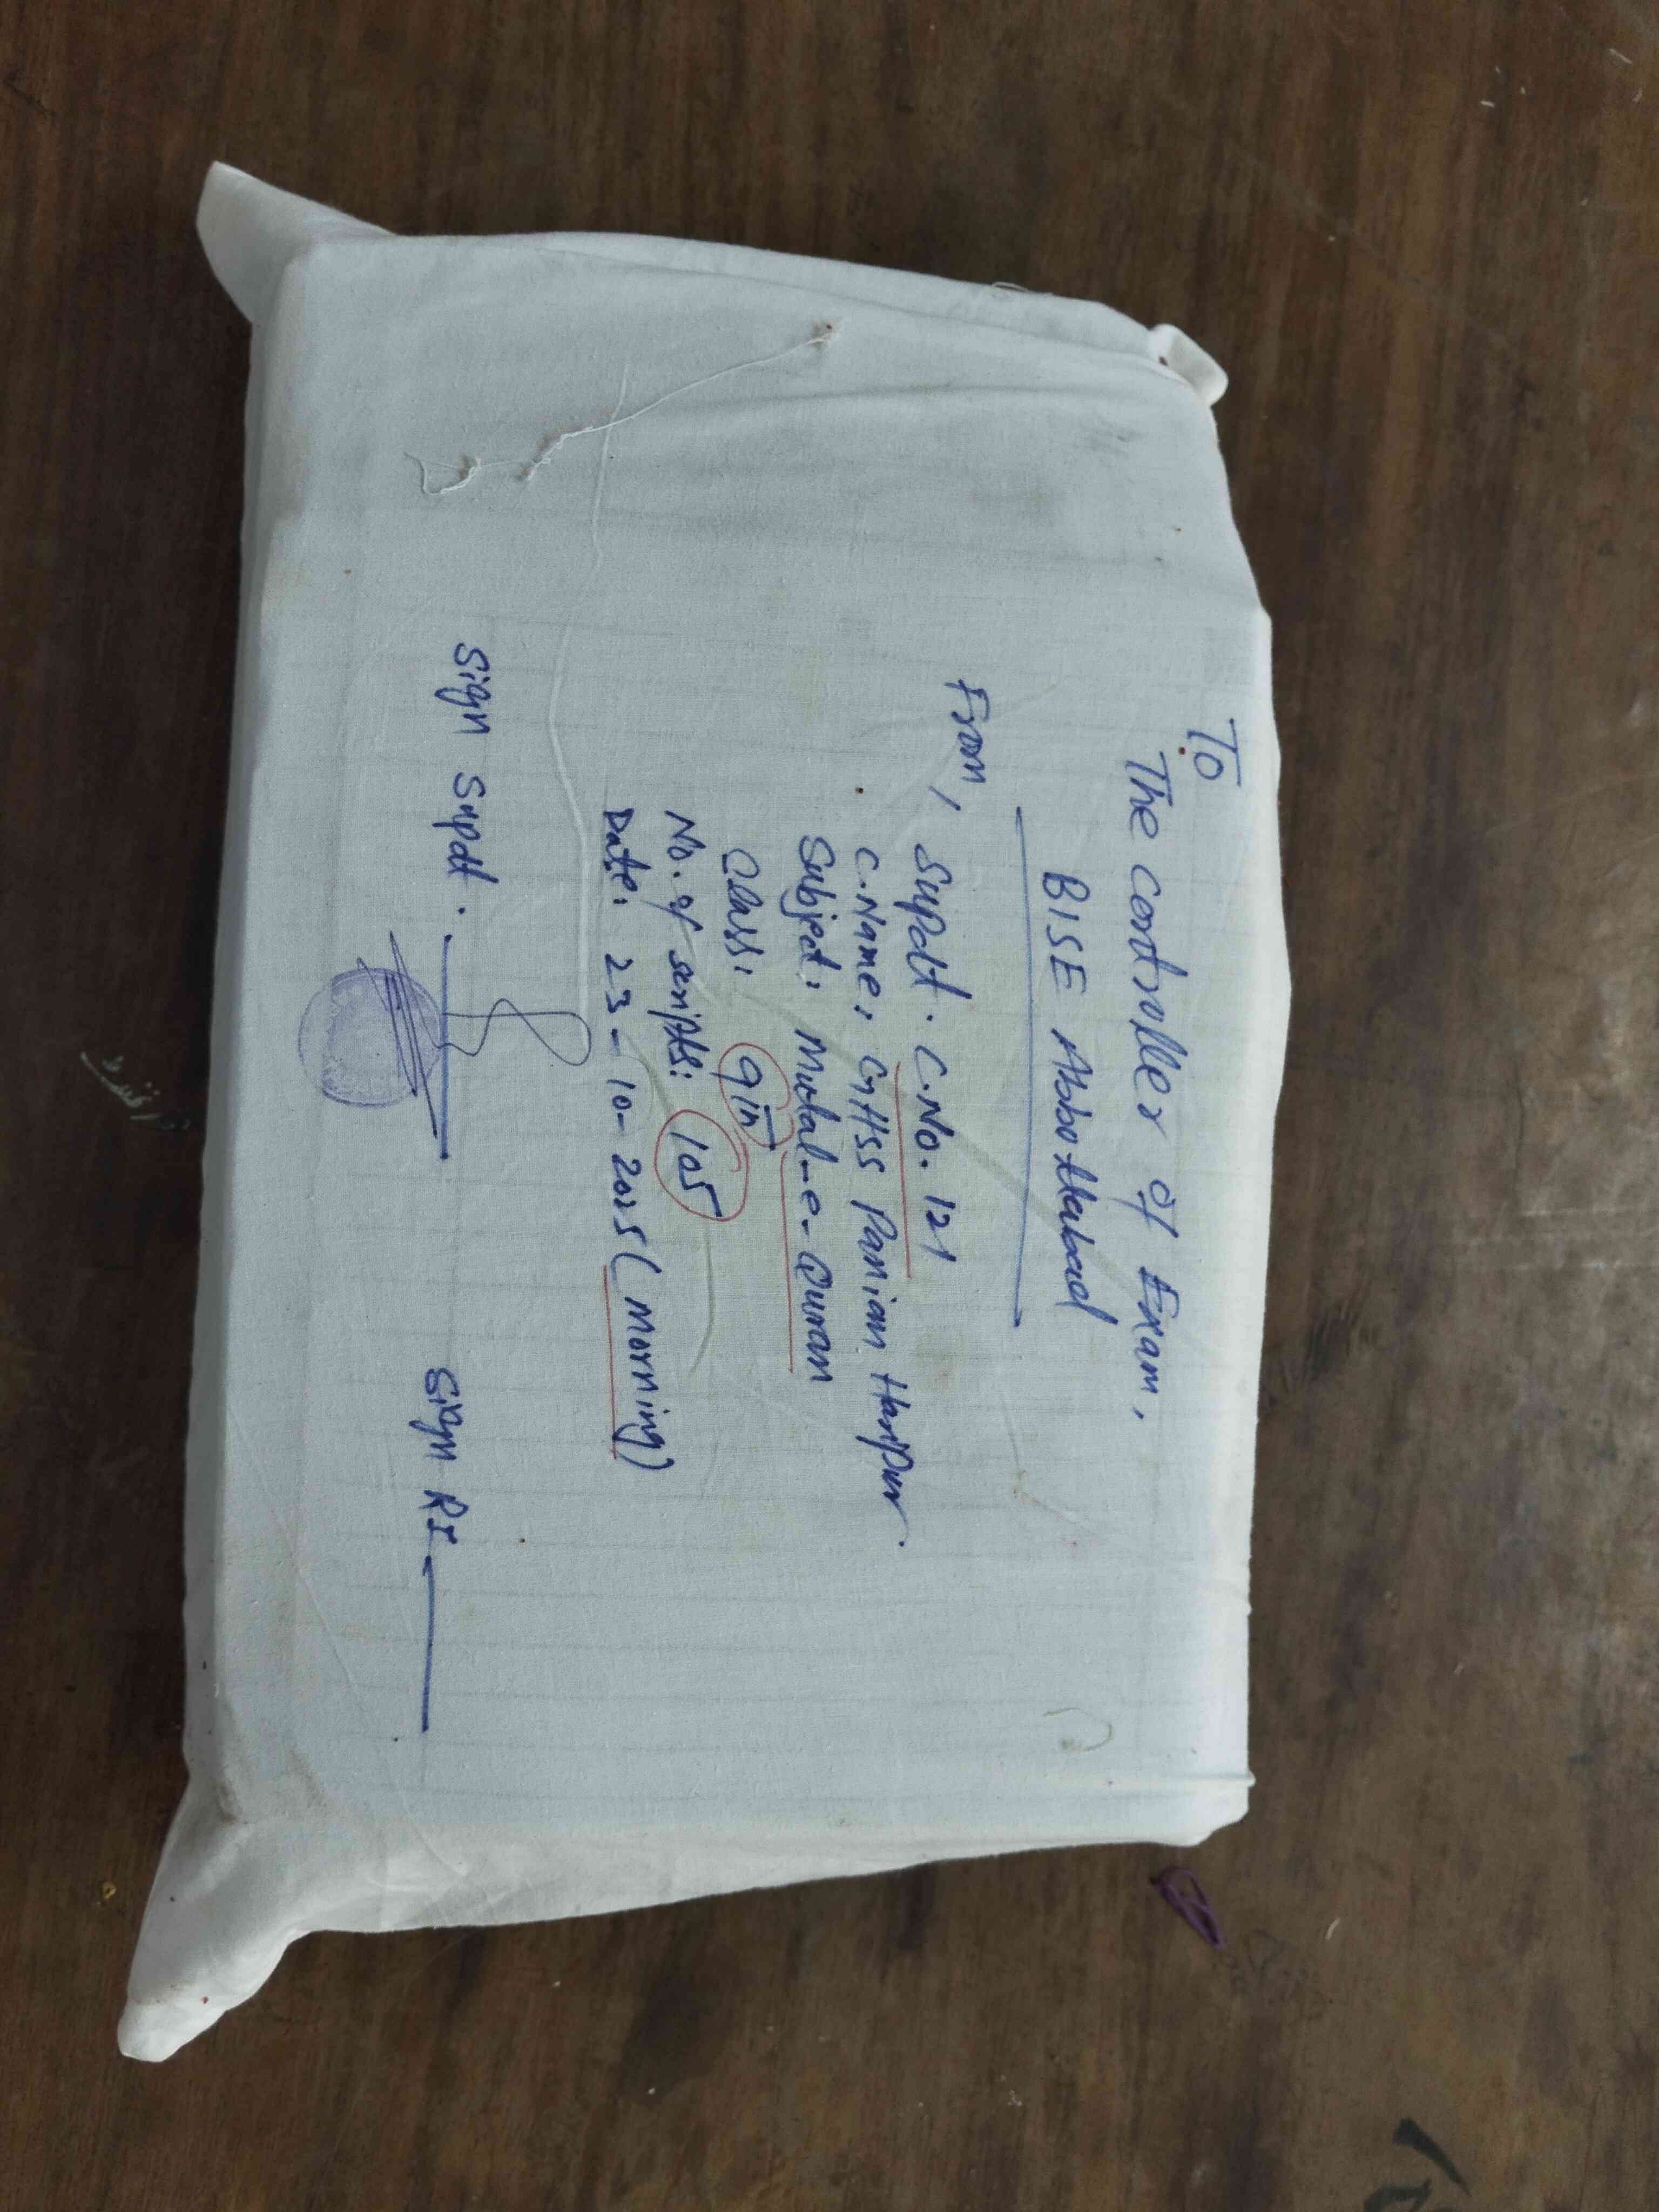 To
The controller of Exam,
BISE Abbottabad
From, Supdt. C.No. 121
C.Name: GHSS Panian Haripur.
Subject: Mutal-e-Quran
Class: 9th
No. of scripts: 105
Date: 23-10-2025 (morning)
Sign Supdt.
Sign RI